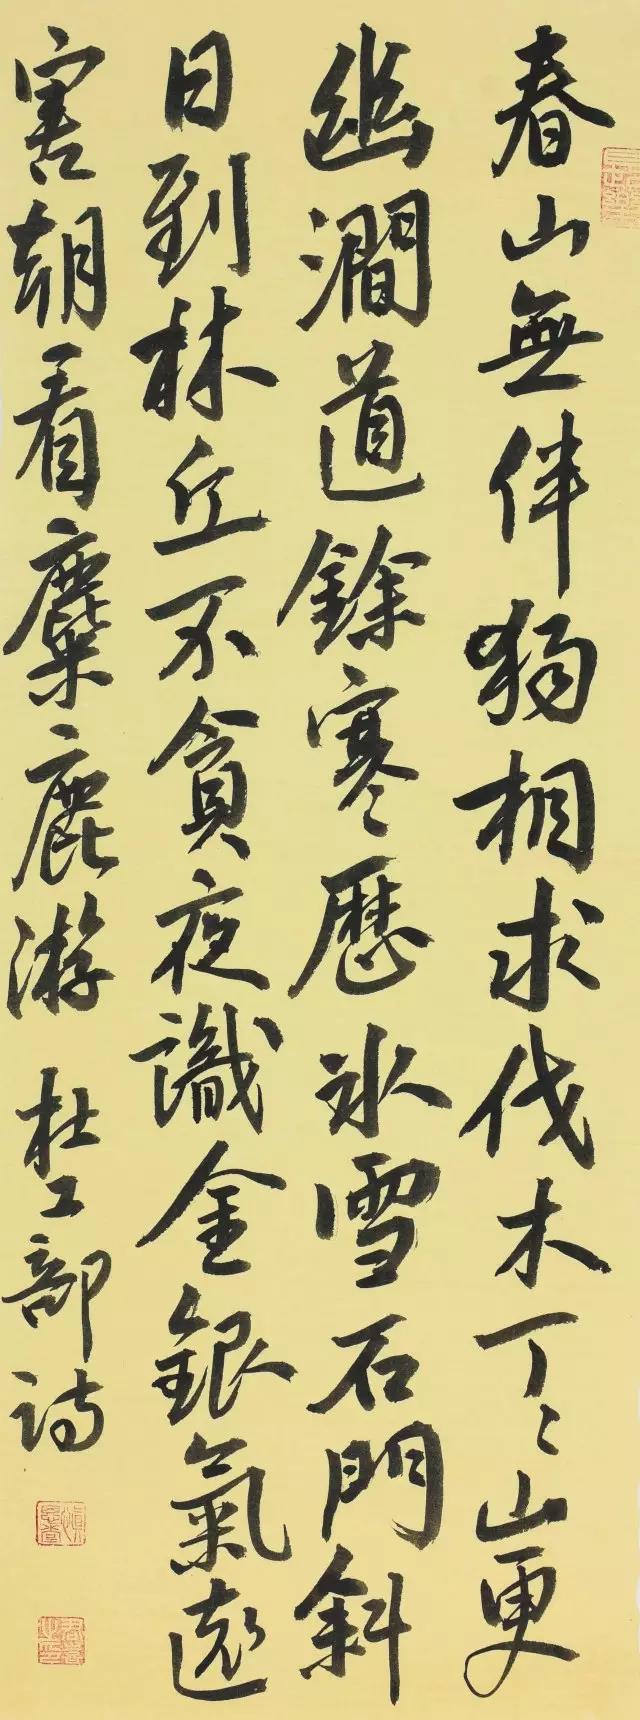 春山無伴獨相求伐木丁〻山更
幽澗道餘寒歷冰雪石門斜
日到林丘不貪夜識金銀氣遠
害朝看麋鹿游 杜工部詩